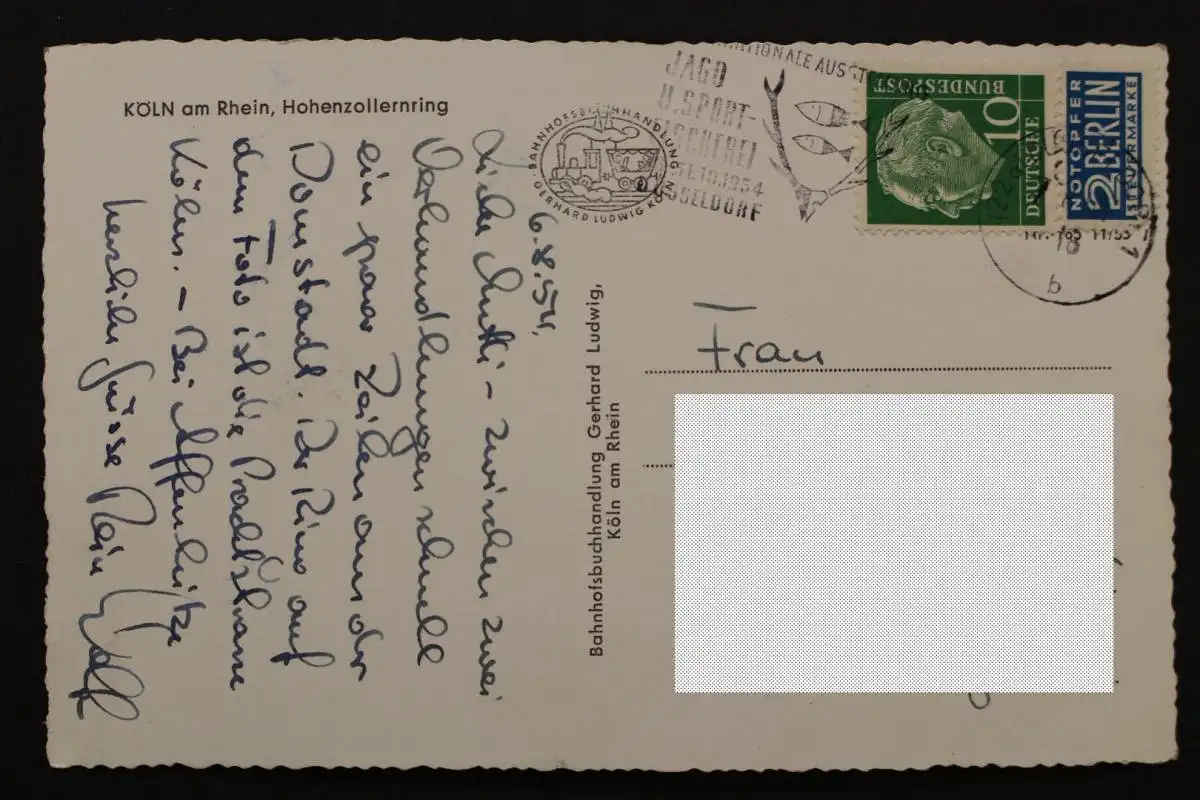 KÖLN am Rhein, Hohenzollernring
6.8.54.
Liebe Mutti – zwischen zwei
Verhandlungen schnell
ein paar Zeilen aus der
Domstadt. Der Ring auf
dem Foto ist die Prachtstrasse
Kölns. – Bei Affenhitze
herzliche Grüsse Dein
BAHNHOFSBUCHHANDLUNG
GERHARD LUDWIG KÖLN
Bahnhofsbuchhandlung Gerhard Ludwig,
Köln am Rhein
JAGD
U. SPORT-
FISCHEREI
1954
DÜSSELDORF
DEUTSCHE
BUNDESPOST
10
NOTOPFER
2 BERLIN
STEUERMARKE
11/53
18
b
Frau